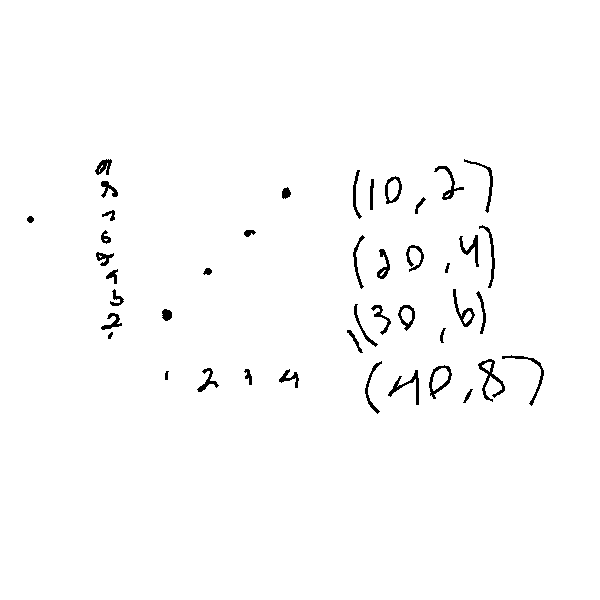 9
8
7
6
5
4
3
2
1
1 2 3 4
(10,2)
(20,4)
(30,6)
(40,8)